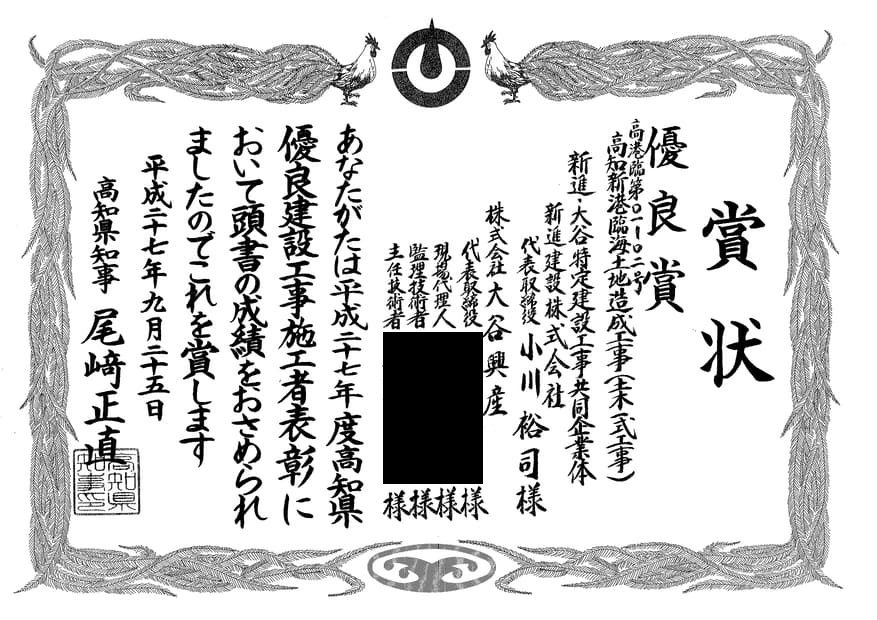 賞状
優良賞
高港臨第〇一-〇二号
高知新港臨海土地造成工事(土木一式工事)
新進・大谷特定建設工事共同企業体
新進建設株式会社
代表取締役 小川裕司様
株式会社大谷興産
代表取締役 様
現場代理人 様
監理技術者 様
主任技術者 様
あなたがたは平成二十七年度高知県
優良建設工事施工者表彰に
おいて頭書の成績をおさめられ
ましたのでこれを賞します
平成二十七年九月二十五日
高知県知事 尾﨑正直
高知県
知事印